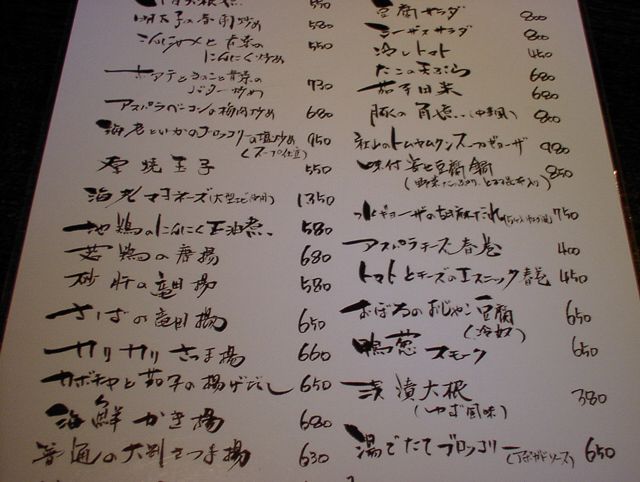 550
明太子の春雨炒め 650
こんにゃくと青菜の
にんにく炒め 550
ホタテときのこと青菜の
バター炒め 730
アスパラベーコンの梅肉炒め 680
海老といかのブロッコリーの塩炒め 950
(スープ仕立)
雪焼玉子 550
海老マヨネーズ(大型えび使用) 1350
地鶏のにんにく正油煮 580
若鶏の唐揚 680
砂肝の竜田揚 580
さばの竜田揚 650
サリサリさつま揚 660
カボチャと茄子の揚げだし 650
海鮮かき揚 680
普通の大判さつま揚 630
豆腐サラダ 800
シーザーサラダ 800
冷しトマト 450
たこの天ぷら 680
茄子田楽 680
豚の角煮(中華風) 800
トムヤムクンスープギョーザ 980
味付 豆腐鍋 850
(野菜たっぷり とろろ昆布入り)
水ギョーザの胡麻だれ 750
アスパラチーズ春巻 400
トマトとチーズのエスニック春巻 450
おぼろのおじゃこ豆腐 650
(冷奴)
鴨葱スモーク 650
浅漬大根 380
(ゆず風味)
湯でたてブロッコリー(アボガドソース) 650